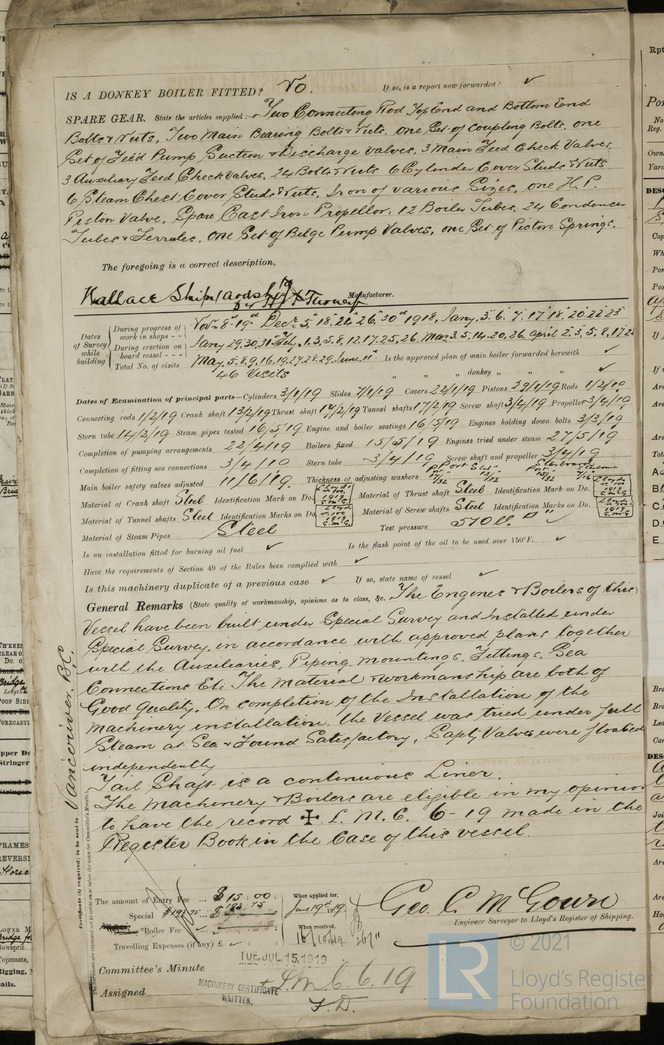 IS A DONKEY BOILER FITTED? No. If so, is a report now forwarded? ✓
SPARE GEAR. State the articles supplied:— Two Connecting Rod Top End and Bottom End
Bolts & Nuts, Two Main Bearing Bolts & Nuts, one Set of Coupling Bolts, one
Set of Feed Pump Suction & Discharge Valves, 3 Main Feed Check Valves
3 Auxiliary Feed Check Valves, 24 Bolts & Nuts 6 Cylender Cover Studs & Nuts
6 Steam Chest Cover Studs & Nuts, Iron of various Sizes, one H.P.
Piston Valve, Spare Cast Iron Propellor, 12 Boiler Tubes, 24 Condenser
Tubes & Ferrules, one Set of Belge Pump Valves, one Set of Piston Springs.
The foregoing is a correct description,
Wallace Shipyards Manufacturer.
Dates of Survey while building
During progress of work in shops - - Nov. 8-19th Decr. 5, 18, 26, 30th 1918, Jany. 3. 6. 7. 17. 18. 20 22 23
During erection on board vessel - - - Jany 29, 30, 31 Feby 1. 3, 5, 8, 12, 17, 25, 26, Mar 3. 5, 14, 20, 26, April 2. 3. 5. 8, 17, 22
Total No. of visits May. 5, 8, 9, 16, 19, 27, 28, 29, June 11th Is the approved plan of main boiler forwarded herewith ✓
46 Visits " " " donkey " " " ✓
Dates of Examination of principal parts—Cylinders 3/1/19 Slides 7/1/19 Covers 22/1/19 Pistons 29/1/19 Rods 1/2/19
Connecting rods 1/2/19 Crank shaft 13/2/19 Thrust shaft 17/2/19 Tunnel shafts 17/2/19 Screw shaft 3/4/19 Propeller 3/4/19
Stern tube 14/2/19 Steam pipes tested 16/5/19 Engine and boiler seatings 16/5/19 Engines holding down bolts 3/3/19
Completion of pumping arrangements 22/4/19 Boilers fixed 15/5/19 Engines tried under steam 27/5/19
Completion of fitting sea connections 3/4/19 Stern tube 3/4/19 Screw shaft and propeller 3/4/19
Main boiler safety valves adjusted 11/6/19. Thickness of adjusting washers
Material of Crank shaft Steel Identification Mark on Do. Material of Thrust shaft Steel Identification Mark on Do.
Material of Tunnel shafts Steel Identification Marks on Do. Material of Screw shafts Steel Identification Marks on Do.
Material of Steam Pipes Steel Test pressure 570 lb. □" ✓
Is an installation fitted for burning oil fuel ✓ Is the flash point of the oil to be used over 150°F. ✓
Have the requirements of Section 49 of the Rules been complied with ✓
Is this machinery duplicate of a previous case ✓ If so, state name of vessel ✓
General Remarks (State quality of workmanship, opinions as to class, &c. The Engines & Boilers of this
Vessel have been built under Special Survey and Installed under
Special Survey, in accordance with approved plans together
with the Auxiliaries, Piping, mountings, Fittings, Sea
Connections Etc. The Material & workmanship are both of
Good Quality, On completion of the Installation of the
Machinery installation. the Vessel was tried under full
Steam at Sea & Found Satisfactory, Safety Valves were floated
independently
Tail Shaft is a continuous Liner.
The Machinery & Boilers are eligible in my opinion
to have the record ✠ L.M.C. 6-19 made in the
Register Book in the Case of this vessel.
Vancouver B.C.
The amount of Entry Fee ... £ $ 15.00 : When applied for,
Special $193.75 ... £ 193.75 : June 19th 19.
Boiler Fee ... £ : : When received,
Travelling Expenses (if any) £ :
Geo. C. McGown
Engineer Surveyor to Lloyd's Register of Shipping.
Committee's Minute TUE. JUL. 15. 1919
Assigned L.M.C. 6.19
MACHINERY CERTIFICATE
WRITTEN.
F.D.
© 2021
LR
Lloyd's Register
Foundation